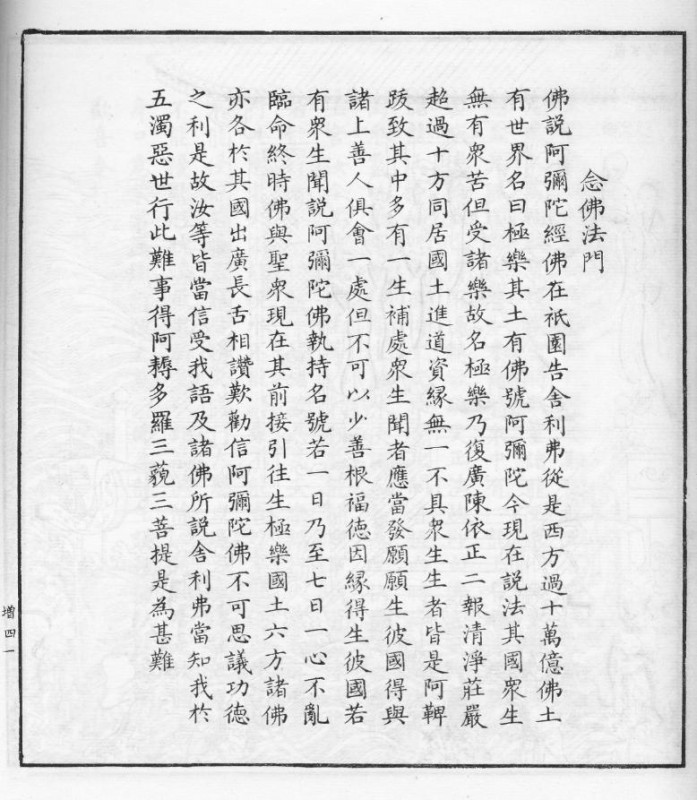 念佛法門
佛說阿彌陀經佛在祇園告舍利弗從是西方過十萬億佛土
有世界名曰極樂其土有佛號阿彌陀今現在說法其國眾生
無有眾苦但受諸樂故名極樂乃復廣陳依正二報清淨莊嚴
超過十方同居國土進道資緣無一不具眾生生者皆是阿鞞
跋致其中多有一生補處眾生聞者應當發願願生彼國得與
諸上善人俱會一處但不可以少善根福德因緣得生彼國若
有眾生聞說阿彌陀佛執持名號若一日乃至七日一心不亂
臨命終時佛與聖眾現在其前接引往生極樂國土六方諸佛
亦各於其國出廣長舌相讚歎勸信阿彌陀佛不可思議功德
之利是故汝等皆當信受我語及諸佛所說舍利弗當知我於
五濁惡世行此難事得阿耨多羅三藐三菩提是為甚難
增四一